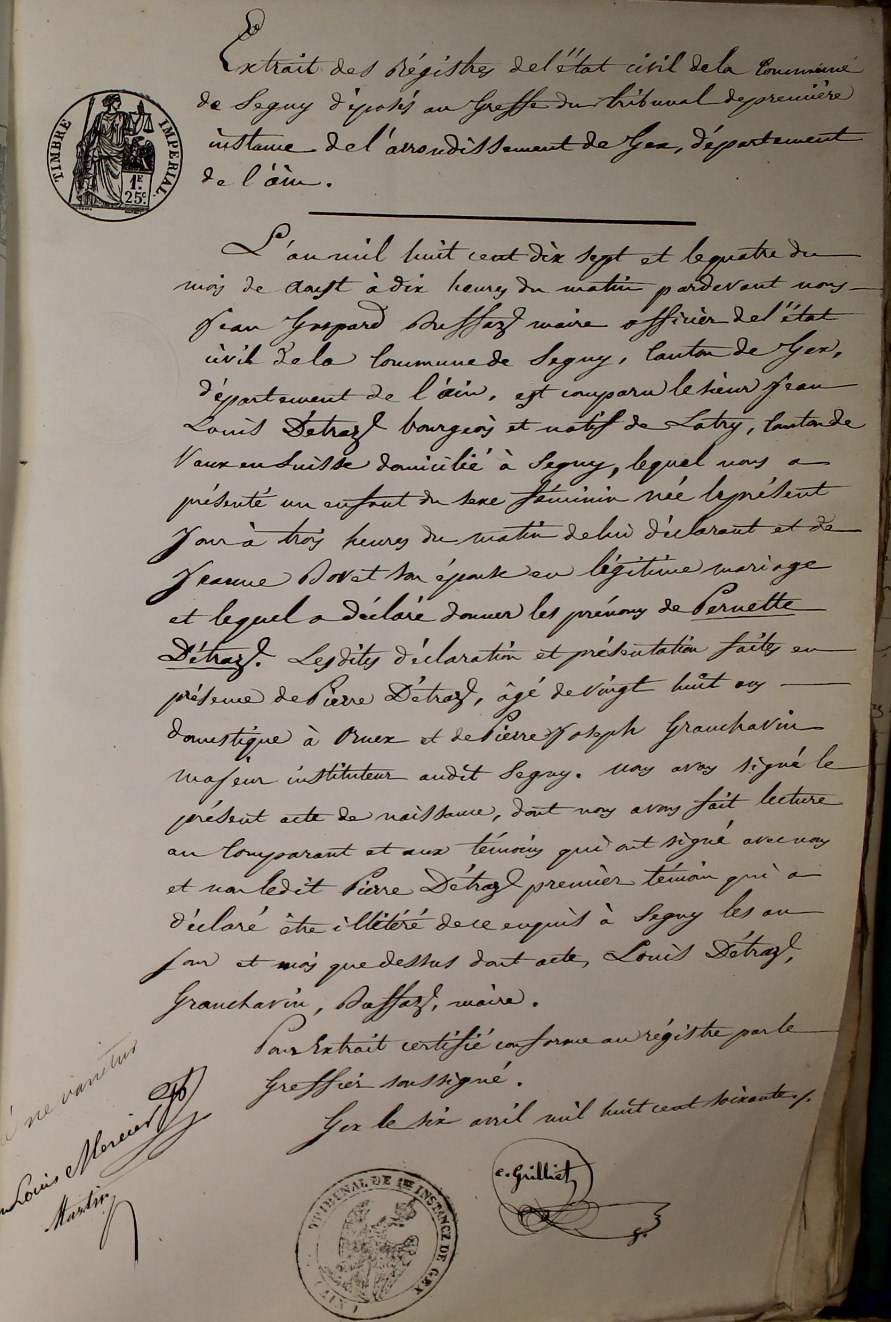 Extrait des Régistres de l'état civil de la Commune
de Segny déposés au Greffe du tribunal de première
instance de l'arrondissement de Gex, département
de l'ain.
TIMBRE IMPERIAL.
1F
25c
L'an mil huit cent dix sept et le quatre du
mois de aoust à dix heures du matin pardevant nous
Jean Gaspard Buffaz maire officier de l'état
civil de la Commune de Segny, Canton de Gex,
département de l'ain, est comparu le sieur Jean
Louis Détraz bourgeois et natif de Lutry, Canton de
Vaux en Suisse domicilié à Segny, lequel nous a
présenté un enfant du sexe féminin née le présent
jour à trois heures du matin de lui déclarant et de
Jeanne Bovet son épouse en légitime mariage
et lequel a déclaré donner les prénoms de Pernette
Détraz. Lesdites déclaration et présentation faites en
présence de Pierre Détraz, âgé de vingt huit ans
domestique à Ornex et de Pierre Joseph Granchavin
majeur instituteur audit Segny. nous avons signé le
présent acte de naissance, dont nous avons fait lecture
au Comparant et aux témoins qui ont signé avec nous
et non ledit Pierre Détraz premier témoin qui a
déclaré être illétéré de ce enquis à Segny les an
jour et mois que dessus dont acte, Louis Détraz,
Granchavin, Buffaz, maire.
Pour Extrait certifié conforme au régistre par le
Greffier soussigné.
Gex le six avril mil huit cent soixante ./.
é ne varietur
Louis Mercier
Martin
e. Grilliet
TRIBUNAL DE 1ERE INSTANCE DE GEX
(AIN)